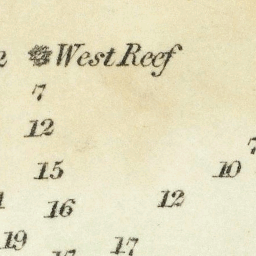 West Reef
7
12
7
15 10
16 12
19 17